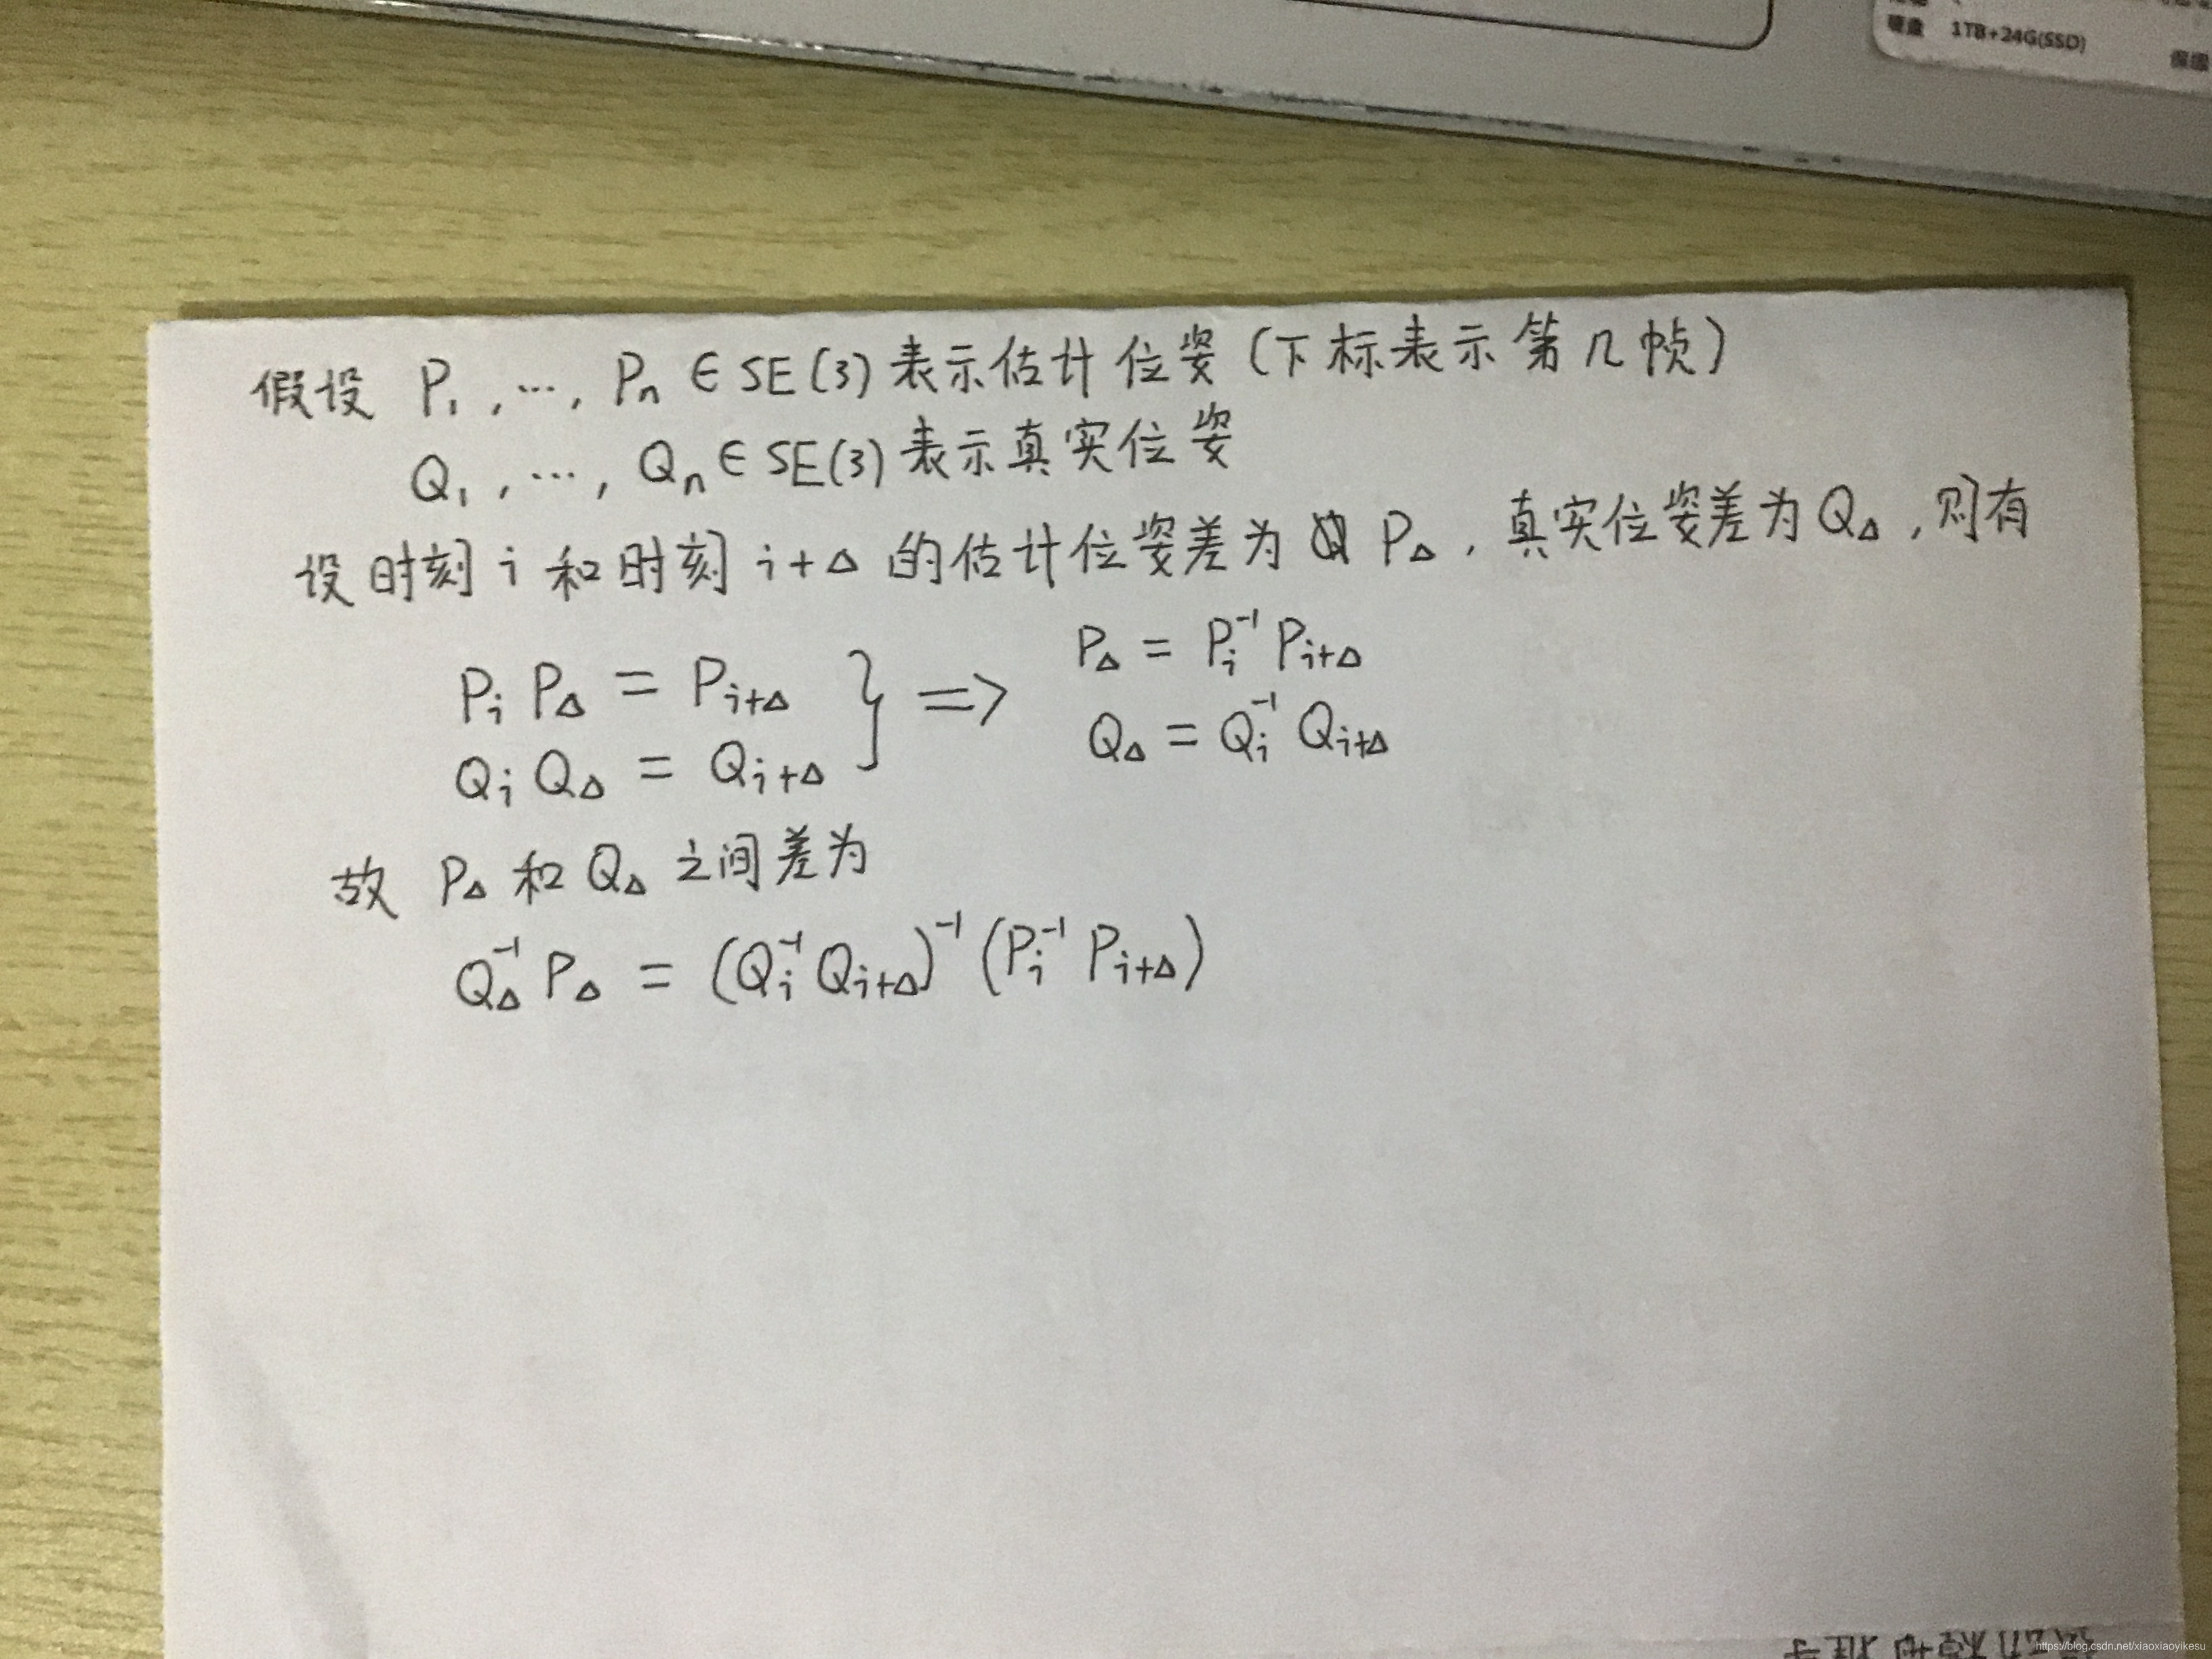 硬盘 1TB+24G(SSD)
假设 P₁, ⋯, Pₙ ∈ SE(3) 表示估计位姿 (下标表示第几帧)
Q₁, ⋯, Qₙ ∈ SE(3) 表示真实位姿
设时刻 i 和时刻 i+Δ 的估计位姿差为 P_Δ, 真实位姿差为 Q_Δ, 则有
P_i P_Δ = P_{i+Δ} } => P_Δ = P_i^{-1} P_{i+Δ}
Q_i Q_Δ = Q_{i+Δ} } Q_Δ = Q_i^{-1} Q_{i+Δ}
故 P_Δ 和 Q_Δ 之间差为
Q_Δ^{-1} P_Δ = (Q_i^{-1} Q_{i+Δ})^{-1} (P_i^{-1} P_{i+Δ})
https://blog.csdn.net/xiaoxiaoyikesu